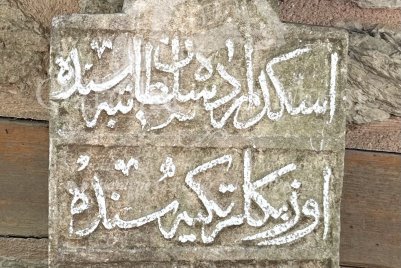 اسكدارده سلطان تپه سنده
اوزبكلر تكيه سنده